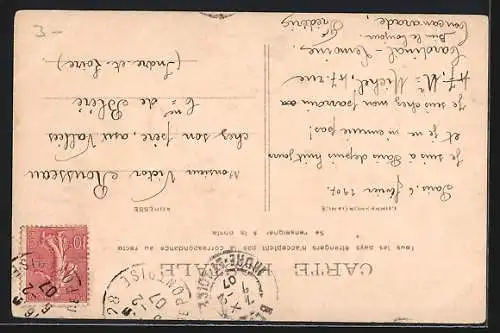 CARTE POSTALE
Tous les pays étrangers n'acceptent pas la correspondance au recto
Se renseigner à la poste
CORRESPONDANCE
ADRESSE
Paris. 6 février 1907.
Je suis à Paris depuis huit jours
et je ne m'ennuie pas!
Je suis chez mon parrain au
47, rue Cardinal Lemoine.
Bien le bonjour.
Ton camarade,
Frédéric
Monsieur Victor Rousseau
chez son père, aux Vallées
Cne de Bléré
(Indre et Loire)
3-
10
PONTOISE
07
INDRE-ET-LOIRE
7-2
07